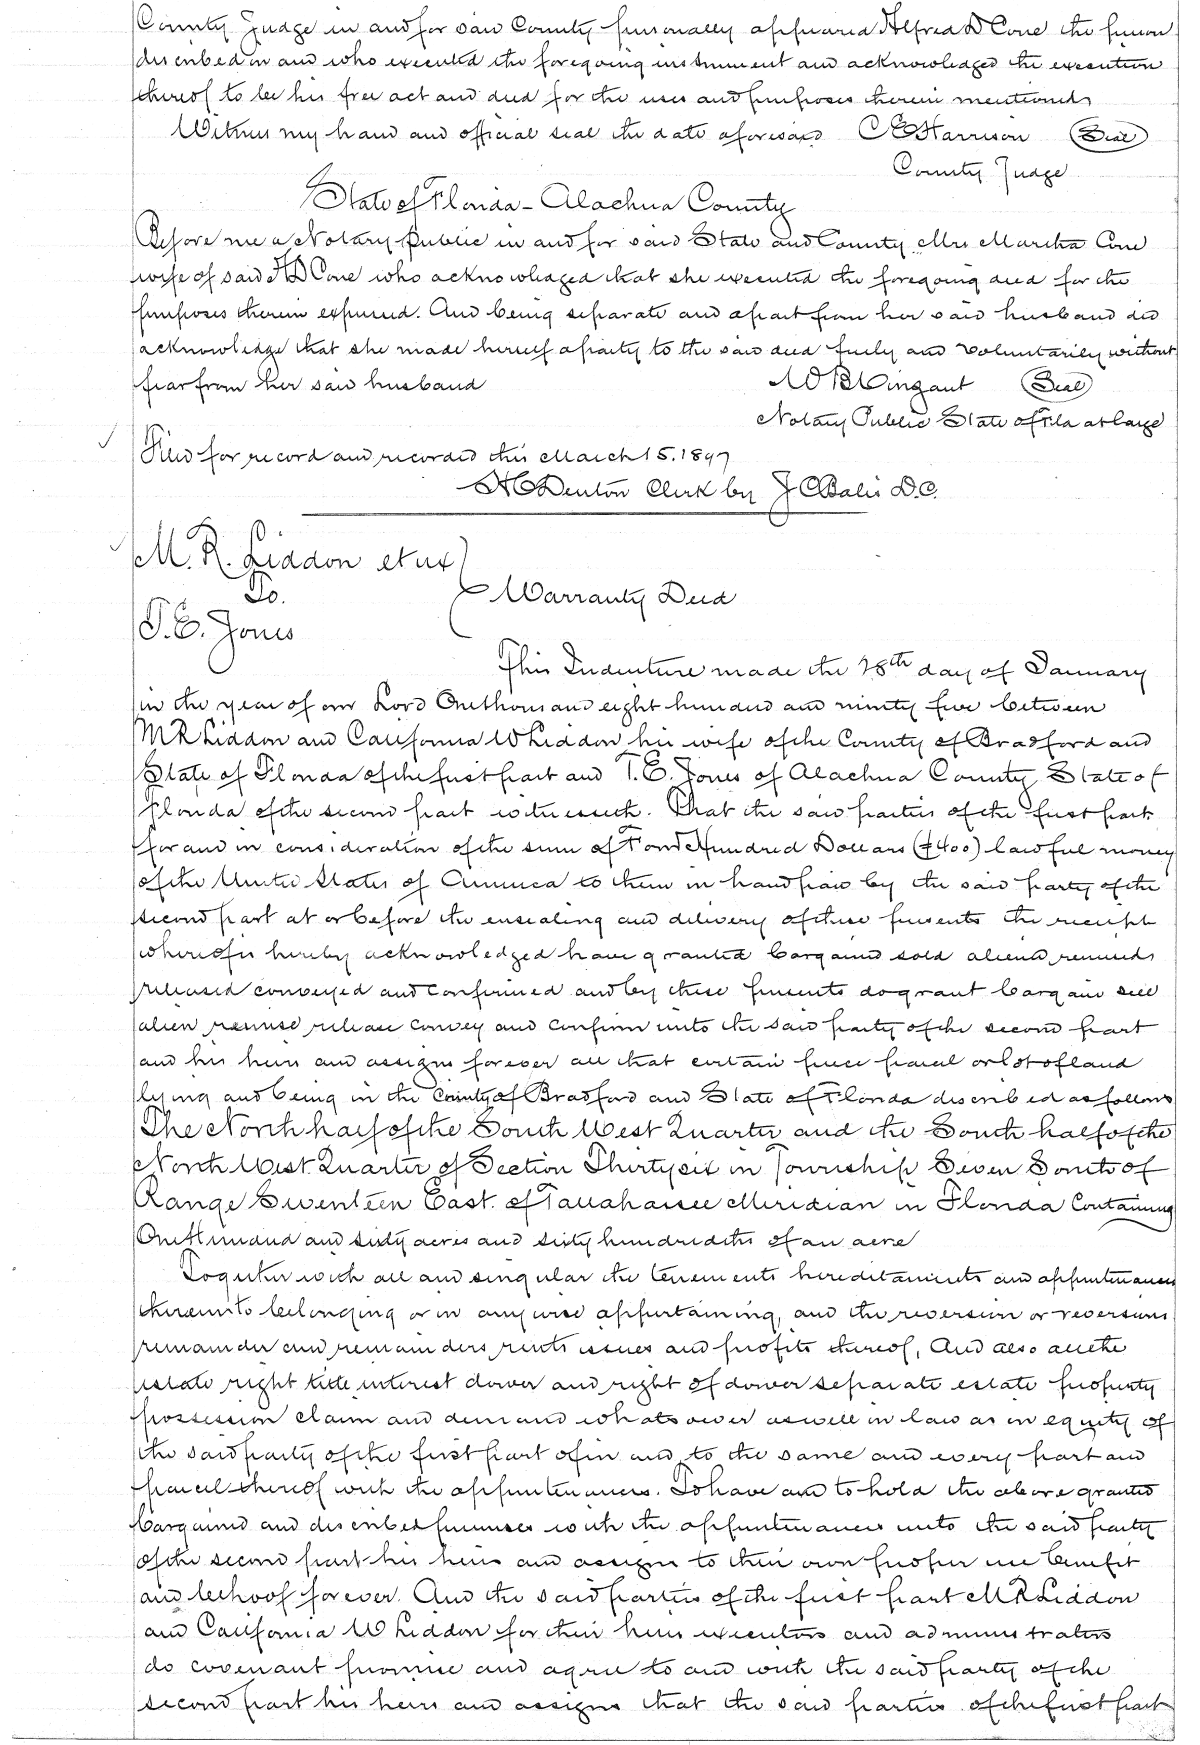 County Judge in and for said County personally appeared Alfred D Cone the person
described in and who executed the foregoing instrument and acknowledged the execution
thereof to be his free act and deed for the uses and purposes therein mentioned
Witness my hand and official seal the date aforesaid C E Harrison Seal
County Judge
State of Florida - Alachua County
Before me a Notary Public in and for said State and County Mrs Martha Cone
wife of said A D Cone who acknowledged that she executed the foregoing deed for the
purposes therein expressed. And being separate and apart from her said husband did
acknowledge that she made herself a party to the said deed freely and voluntarily without
fear from her said husband Seal
Notary Public State of Fla at large
Filed for record and recorded this March 15. 1897
H C Denton Clerk by J C D.C.
M. R. Liddon et ux
To. Warranty Deed
T. E. Jones
This Indenture made the 28th day of January
in the year of our Lord One thousand eight hundred and ninety five between
M R Liddon and California W Liddon his wife of the County of Bradford and
State of Florida of the first part and T. E. Jones of Alachua County State of
Florida of the second part witnesseth. That the said parties of the first part
for and in consideration of the sum of Four Hundred Dollars ($400) lawful money
of the United States of America to them in hand paid by the said party of the
second part at or before the ensealing and delivery of these presents the receipt
whereof is hereby acknowledged have granted bargained sold aliened remised
released conveyed and confirmed and by these presents do grant bargain sell
alien remise release convey and confirm unto the said party of the second part
and his heirs and assigns forever all that certain piece parcel or lot of land
lying and being in the County of Bradford and State of Florida described as follows
The North half of the South West Quarter and the South half of the
North West Quarter of Section Thirty six in Township Seven South of
Range Seventeen East. of Tallahassee Meridian in Florida Containing
One Hundred and sixty acres and sixty hundredths of an acre
Together with all and singular the tenements hereditaments and appurtenances
thereunto belonging or in any wise appertaining, and the reversion or reversions
remainder and remainders rents issues and profits thereof, And also all the
estate right title interest dower and right of dower separate estate property
possession claim and demand whatsoever as well in law as in equity of
the said party of the first part of in and to the same and every part and
parcel thereof with the appurtenances. To have and to hold the above granted
bargained and described premises with the appurtenances unto the said party
of the second part his heirs and assigns to their own proper use benefit
and behoof forever. And the said parties of the first part M R Liddon
and California W Liddon for their heirs executors and administrators
do covenant promise and agree to and with the said party of the
second part his heirs and assigns that the said parties of the first part